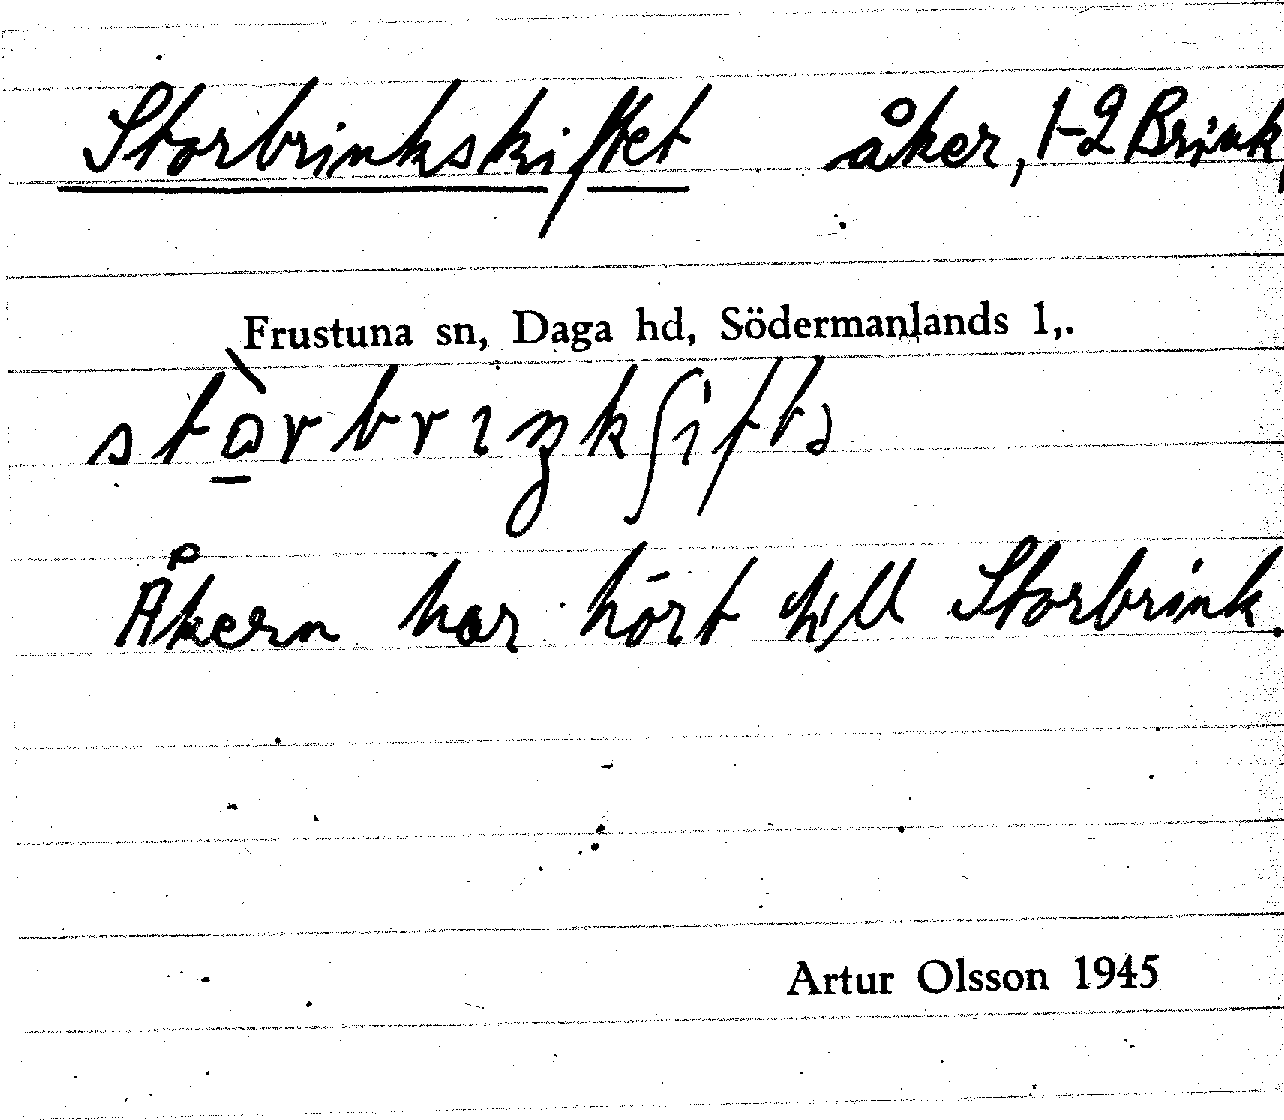 Storbrinkskiftet åker, 1-2 Brink,
Frustuna sn, Daga hd, Södermanlands l,.
Åkern har hört till Storbrink.
Artur Olsson 1945